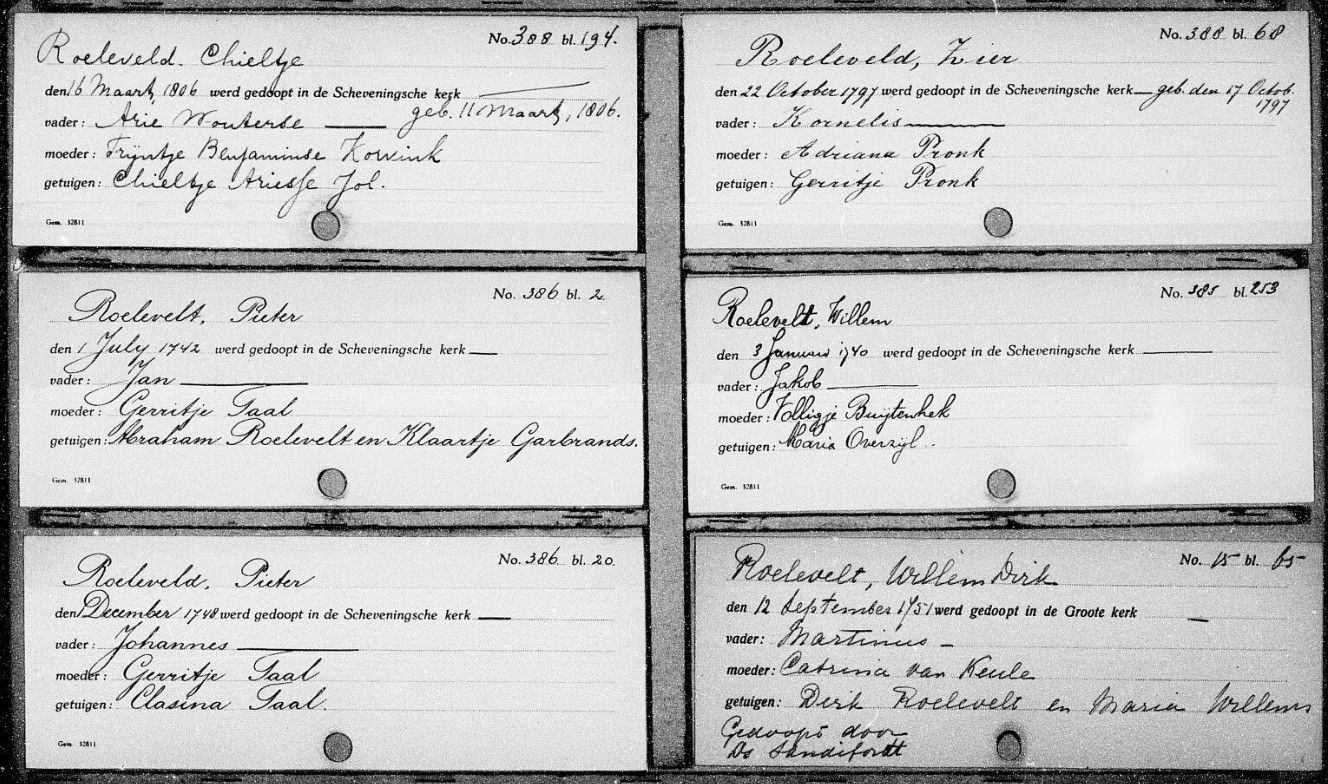 No. 388 bl. 194.
Roeleveld. Chieltje
den 16 Maart, 1806 werd gedoopt in de Scheveningsche kerk
geb. 11 Maart, 1806.
vader: Arie Wouterse
moeder: Trijntje Benjaminse Korvink
getuigen: Chieltje Ariesse Jol.
Gem. 32811
No. 388 bl. 68
Roeleveld, Zier
den 22 October 1797 werd gedoopt in de Scheveningsche kerk geb. den 17 Octob. 1797
vader: Kornelis
moeder: Adriana Pronk
getuigen: Gerritje Pronk
Gem. 32811
No. 386 bl. 2.
Roelevelt, Pieter
den 1 July 1742 werd gedoopt in de Scheveningsche kerk
vader: Jan
moeder: Gerritje Taal
getuigen: Abraham Roelevelt en Klaartje Garbrands.
Gem. 32811
No. 385 bl. 253
Roelevelt, Willem
den 3 Januari 1740 werd gedoopt in de Scheveningsche kerk
vader: Jakob
moeder: Volligje Buijtenhek
getuigen: Maria Overzijl.
Gem. 32811
No. 386 bl. 20.
Roeleveld, Pieter
den 1 December 1748 werd gedoopt in de Scheveningsche kerk
vader: Johannes
moeder: Gerritje Taal
getuigen: Clasina Taal.
Gem. 32811
No. 15 bl. 65
Roelevelt, Willem Dirk
den 12 September 1751 werd gedoopt in de Groote kerk
vader: Martinus
moeder: Catrina van Keule
getuigen: Dirk Roelevelt en Maria Willems
Gedoopt door
Ds Sandifordt